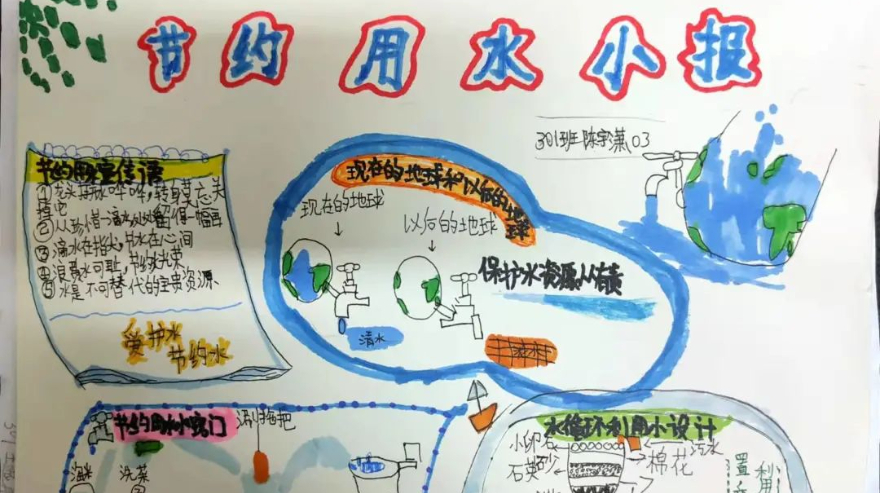 节约用水小报
301班 陈宇潇 03
节约用水宣传语
①龙头拧水哗哗,转身莫忘关
②从珍惜一滴水
③滴水在指尖,节水在心间
④浪费水可耻,节约水光荣
⑤水是不可替代的宝贵资源
爱护水
节约水
现在的地球和以后的地球
现在的地球
以后的地球
清水
保护水资源从
节约用水小窍门
拖把
淘米
洗菜
水循环利用小设计
小卵石
石英砂
棉花
污水
置
利用